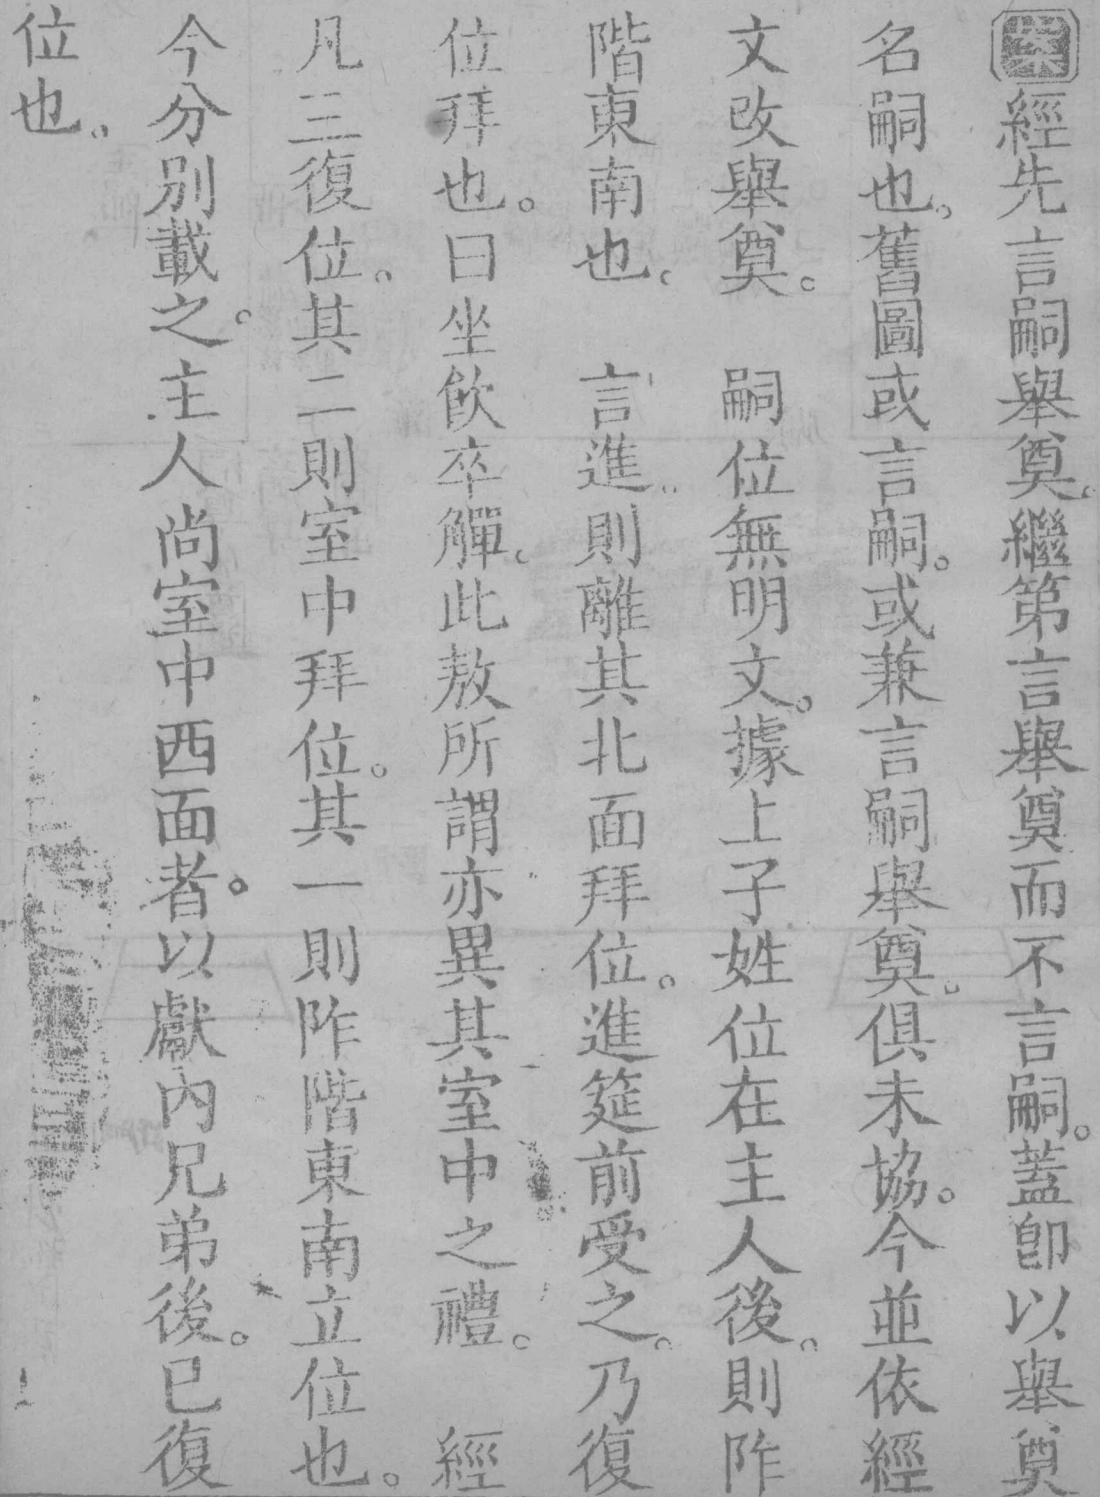 案經先言嗣舉奠。繼第言舉奠而不言嗣。蓋卽以舉奠
名嗣也。舊圖或言嗣。或兼言嗣舉奠。俱未協。今並依經
文改舉奠。　嗣位無明文。據上子姓位在主人後。則阼
階東南也。　言進則離其北面拜位。進筵前受之。乃復
位拜也。曰坐飲卒觶。此敖所謂亦異其室中之禮。　經
凡三復位。其二則室中拜位。其一則阼階東南立位也。
今分別載之。主人尚室中西面者。以獻內兄弟後。已復
位也。